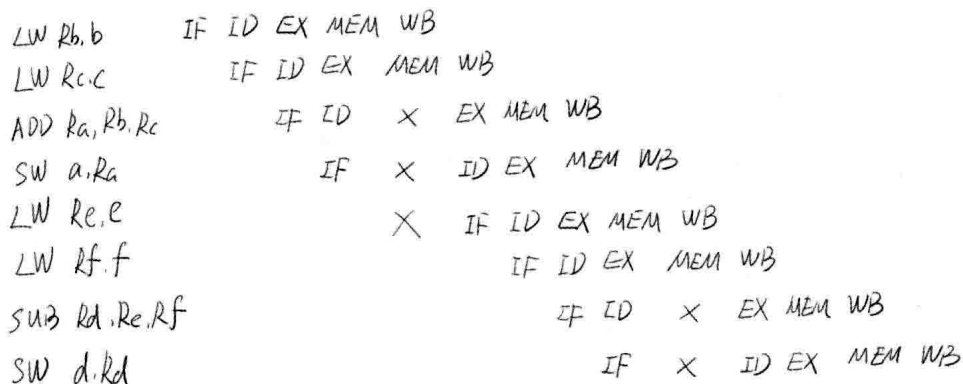 LW Rb,b IF ID EX MEM WB
LW Rc.c IF ID EX MEM WB
ADD Ra,Rb.Rc IF ID X EX MEM WB
SW a.Ra IF X ID EX MEM WB
LW Re.e X IF ID EX MEM WB
LW Rf.f IF ID EX MEM WB
SUB Rd.Re.Rf IF ID X EX MEM WB
SW d.Rd IF X ID EX MEM WB